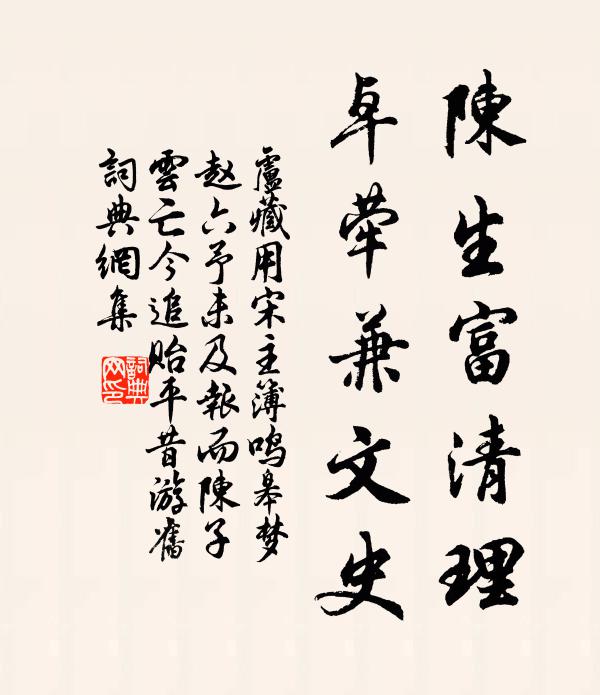 陳生富清理
卓犖兼文史
盧藏用宋主簿鳴皋梦
赵六予未及報而陳子
雲亡今追貽平昔游舊
詞典網集
詞典
网印